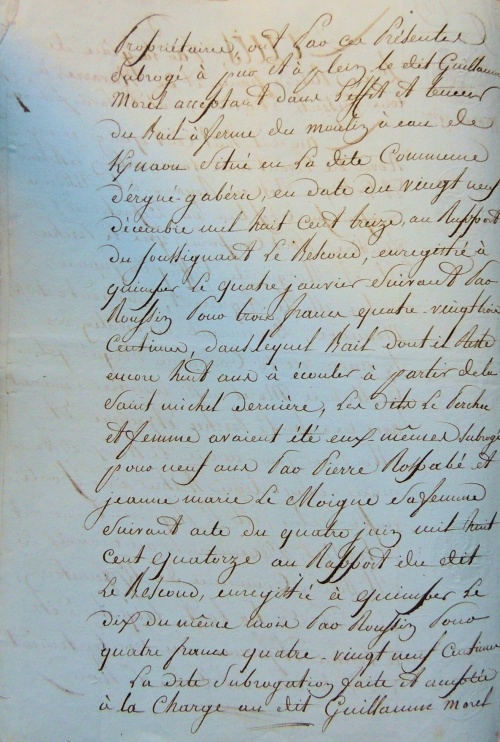 Propriétaires, ont par ces Présentes
Subrogé à pur et à plein le dit Guillaume
Morel acceptant dans l'effet et teneur
du Bail à ferme du moulin à eau de
Kgnaou Situé en la dite Commune
d'ergué-gabéric, en date du vingt neuf
décembre mil huit Cent treize, au Rapport
du soussignant Le Bescond, enregistré à
quimper le quatre janvier Suivant Par
Roussin Pour trois francs quatre-vingt trois
Centimes, dans lequel Bail dont il Reste
encore huit ans à écouler à partir de la
Saint michel dernière, Les dits Le Perchec
et femme avaient été eux mêmes subrogé
pour neuf ans Par Pierre Rospabé et
jeanne marie Le Moigne sa femme
Suivant acte du quatre juin mil huit
Cent quatorze au Rapport du dit
Le Bescond, enregistré à quimper le
dix du même mois Par Roussin Pour
quatre francs quatre-vingt neuf Centimes
La dite Subrogation faite et acceptée
à la Charge au dit Guillaume Morel